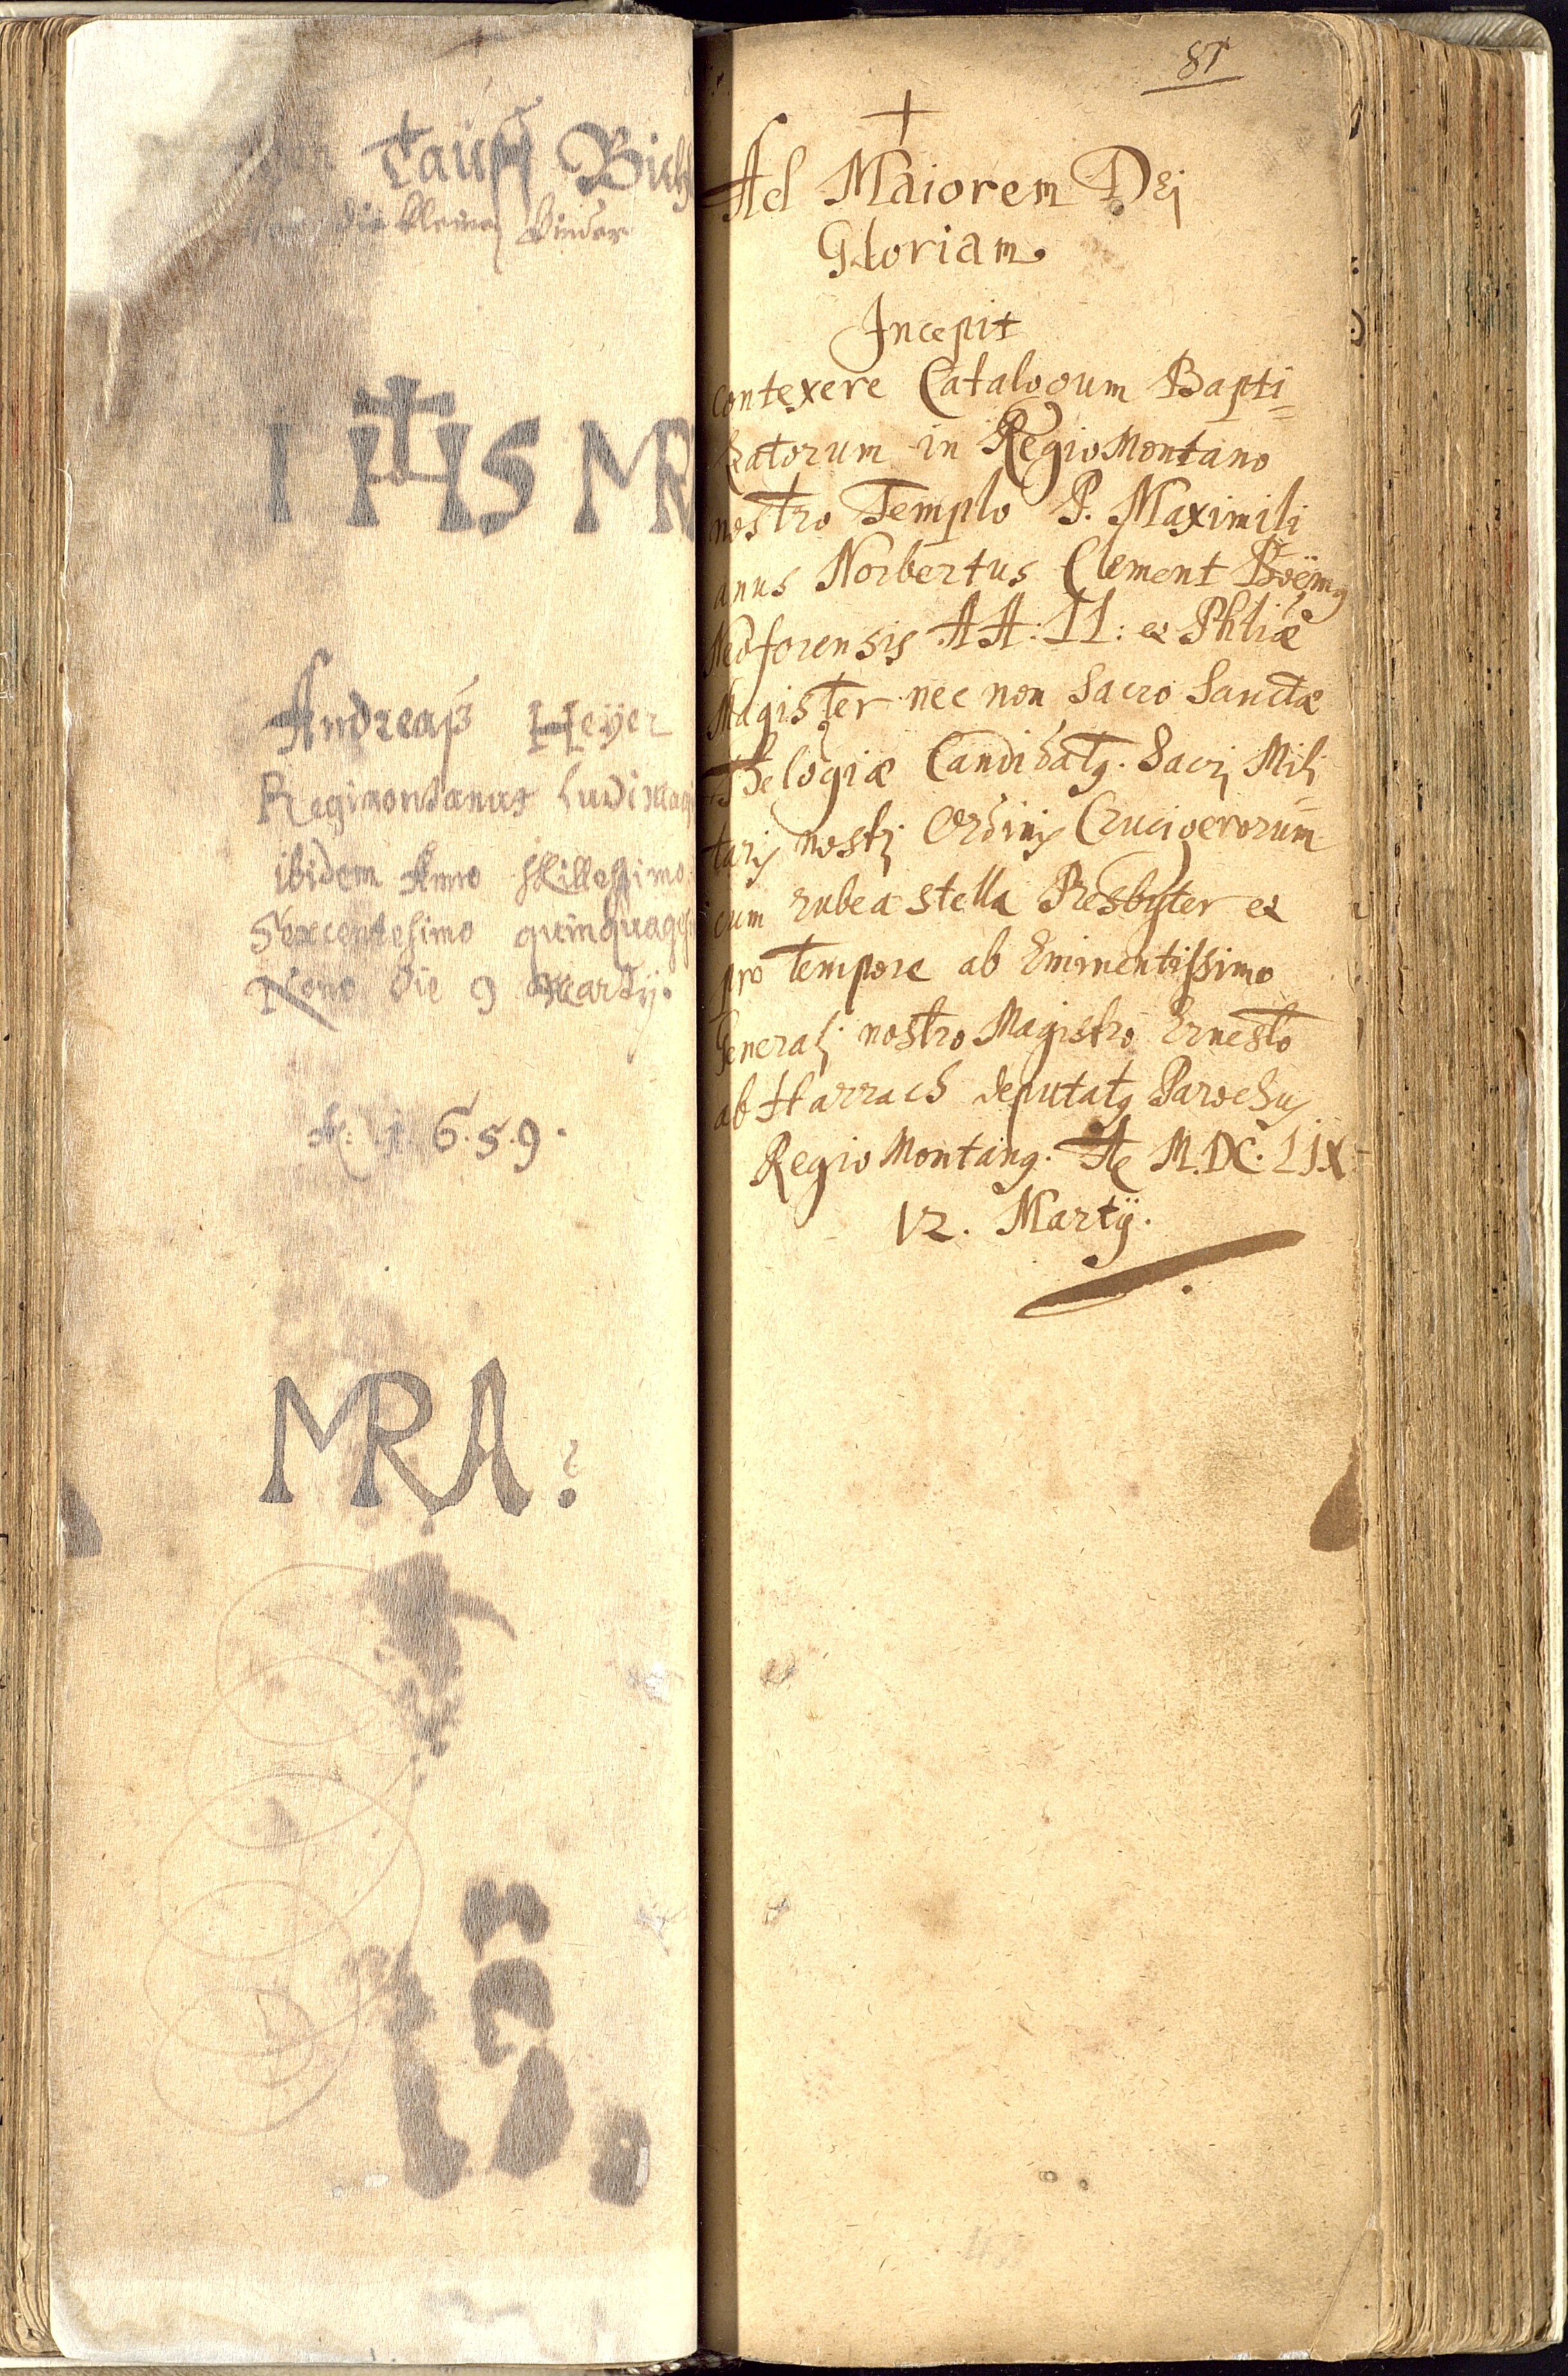 Tauff Bich
die kleinen Kinder
I IHS MR
Andreaß Heÿer
Regimontanus Ludimag
ibidem Anno Millessimo
Sexcentesimo quinquages
Nono Die 9 Martij.
A: 1. 6. 5. 9.
MRA
81
Ad Maiorem Dej
Gloriam.
Incepit
contexere Catalogum Bapti=
zatorum in RegioMontano
nostro Templo P. Maximili
anus Norbertus Clement Boëmq
Neoforensis AA: LL: et Phliæ
Magister nec non Sacro Sanctæ
Thelogiæ Candidatq. Sacrj Mili
taris nostrj Ordinis Crucigerorum
cum rubea stella Presbÿter et
pro tempore ab Eminentissimo
Generalj nostro Magistro Ernesto
ab Harrach deputatq Parochus
Regio Montanq. Ao M.DC.LIX
12. Martÿ.